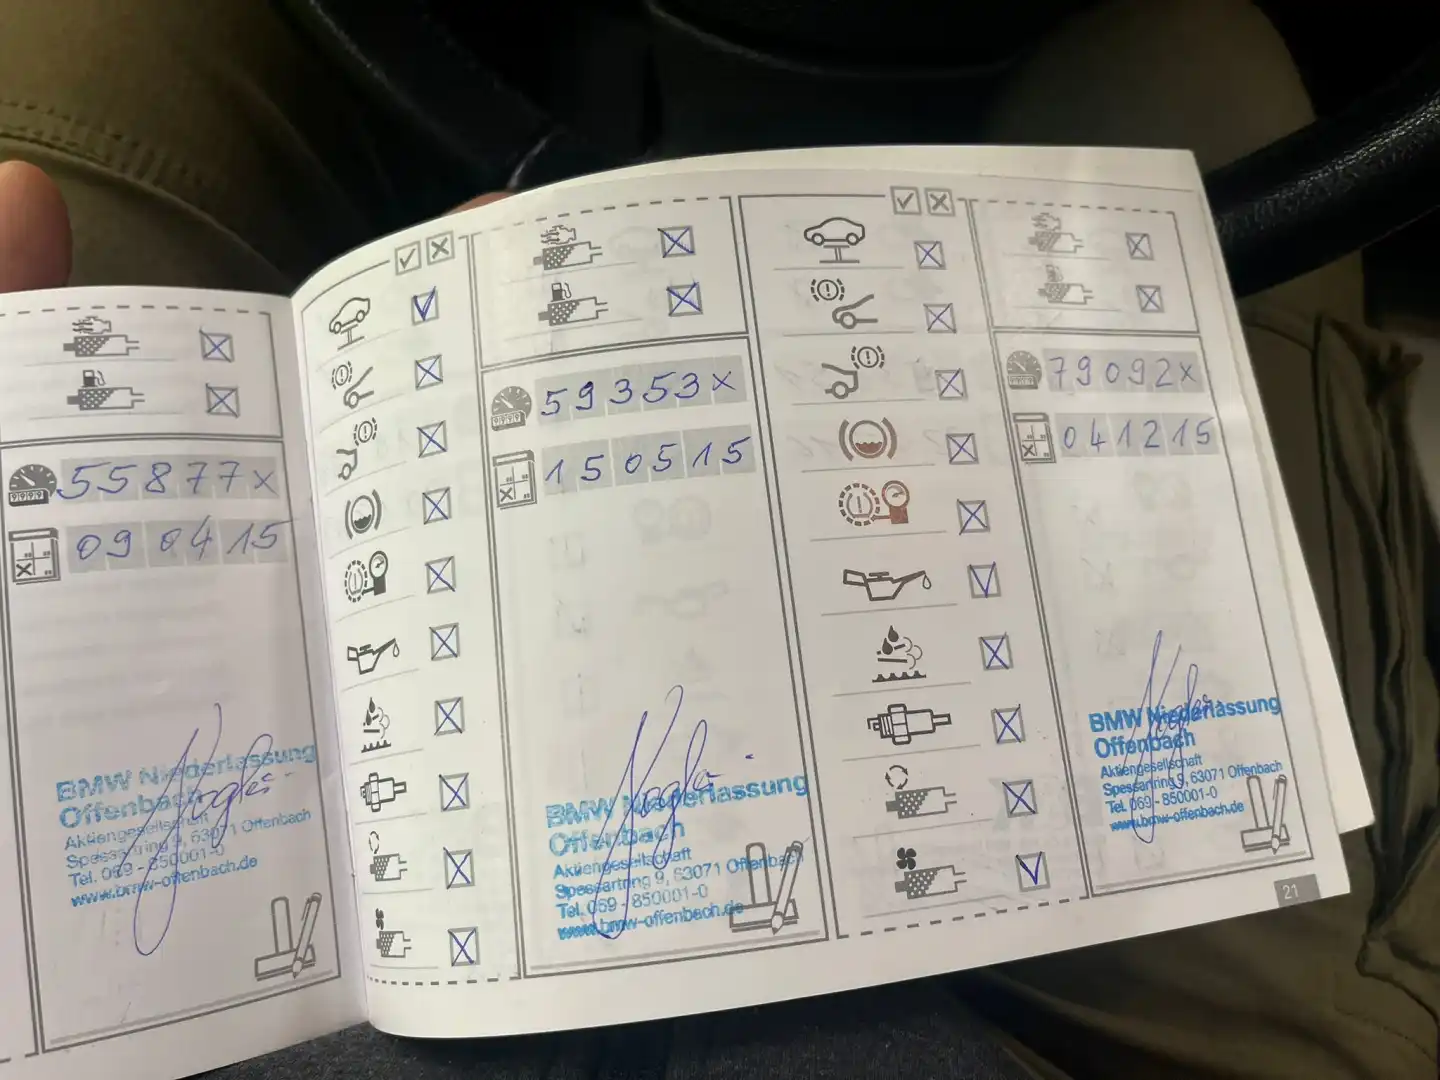 55877x
09 04 15
BMW Niederlassung
Offenbach
Aktiengesellschaft
Spessartring 9, 63071 Offenbach
Tel. 069 - 850001-0
www.bmw-offenbach.de
59353x
150515
BMW Niederlassung
Offenbach
Aktiengesellschaft
Spessartring 9, 63071 Offenbach
Tel. 069 - 850001-0
www.bmw-offenbach.de
79092x
041215
BMW Niederlassung
Offenbach
Aktiengesellschaft
Spessartring 9, 63071 Offenbach
Tel. 069 - 850001-0
www.bmw-offenbach.de
21